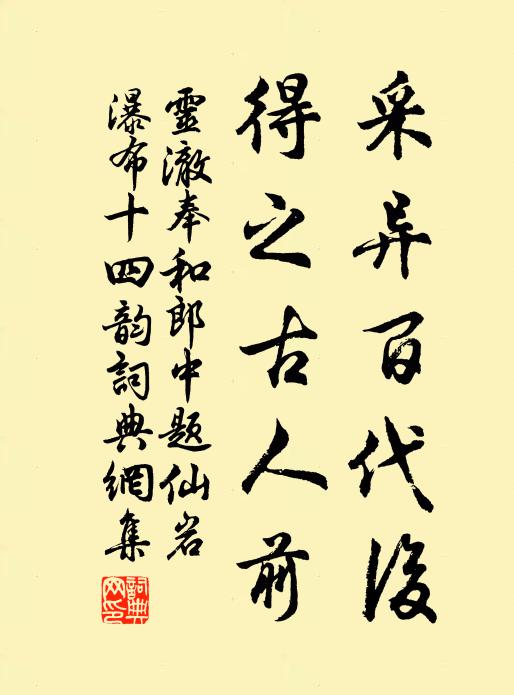 采异百代後
得之古人前
靈澈奉和郎中題仙岩
瀑布十四韵詞典網集
詞典网印